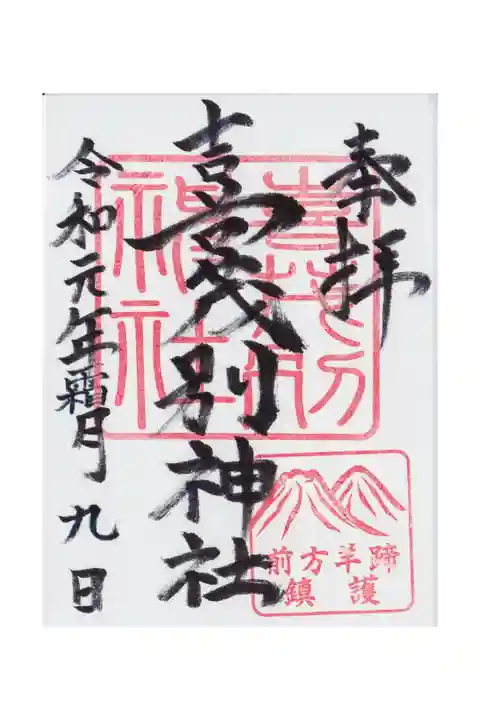 奉拝
喜茂別神社
令和元年霜月九日
前方羊蹄
鎮護